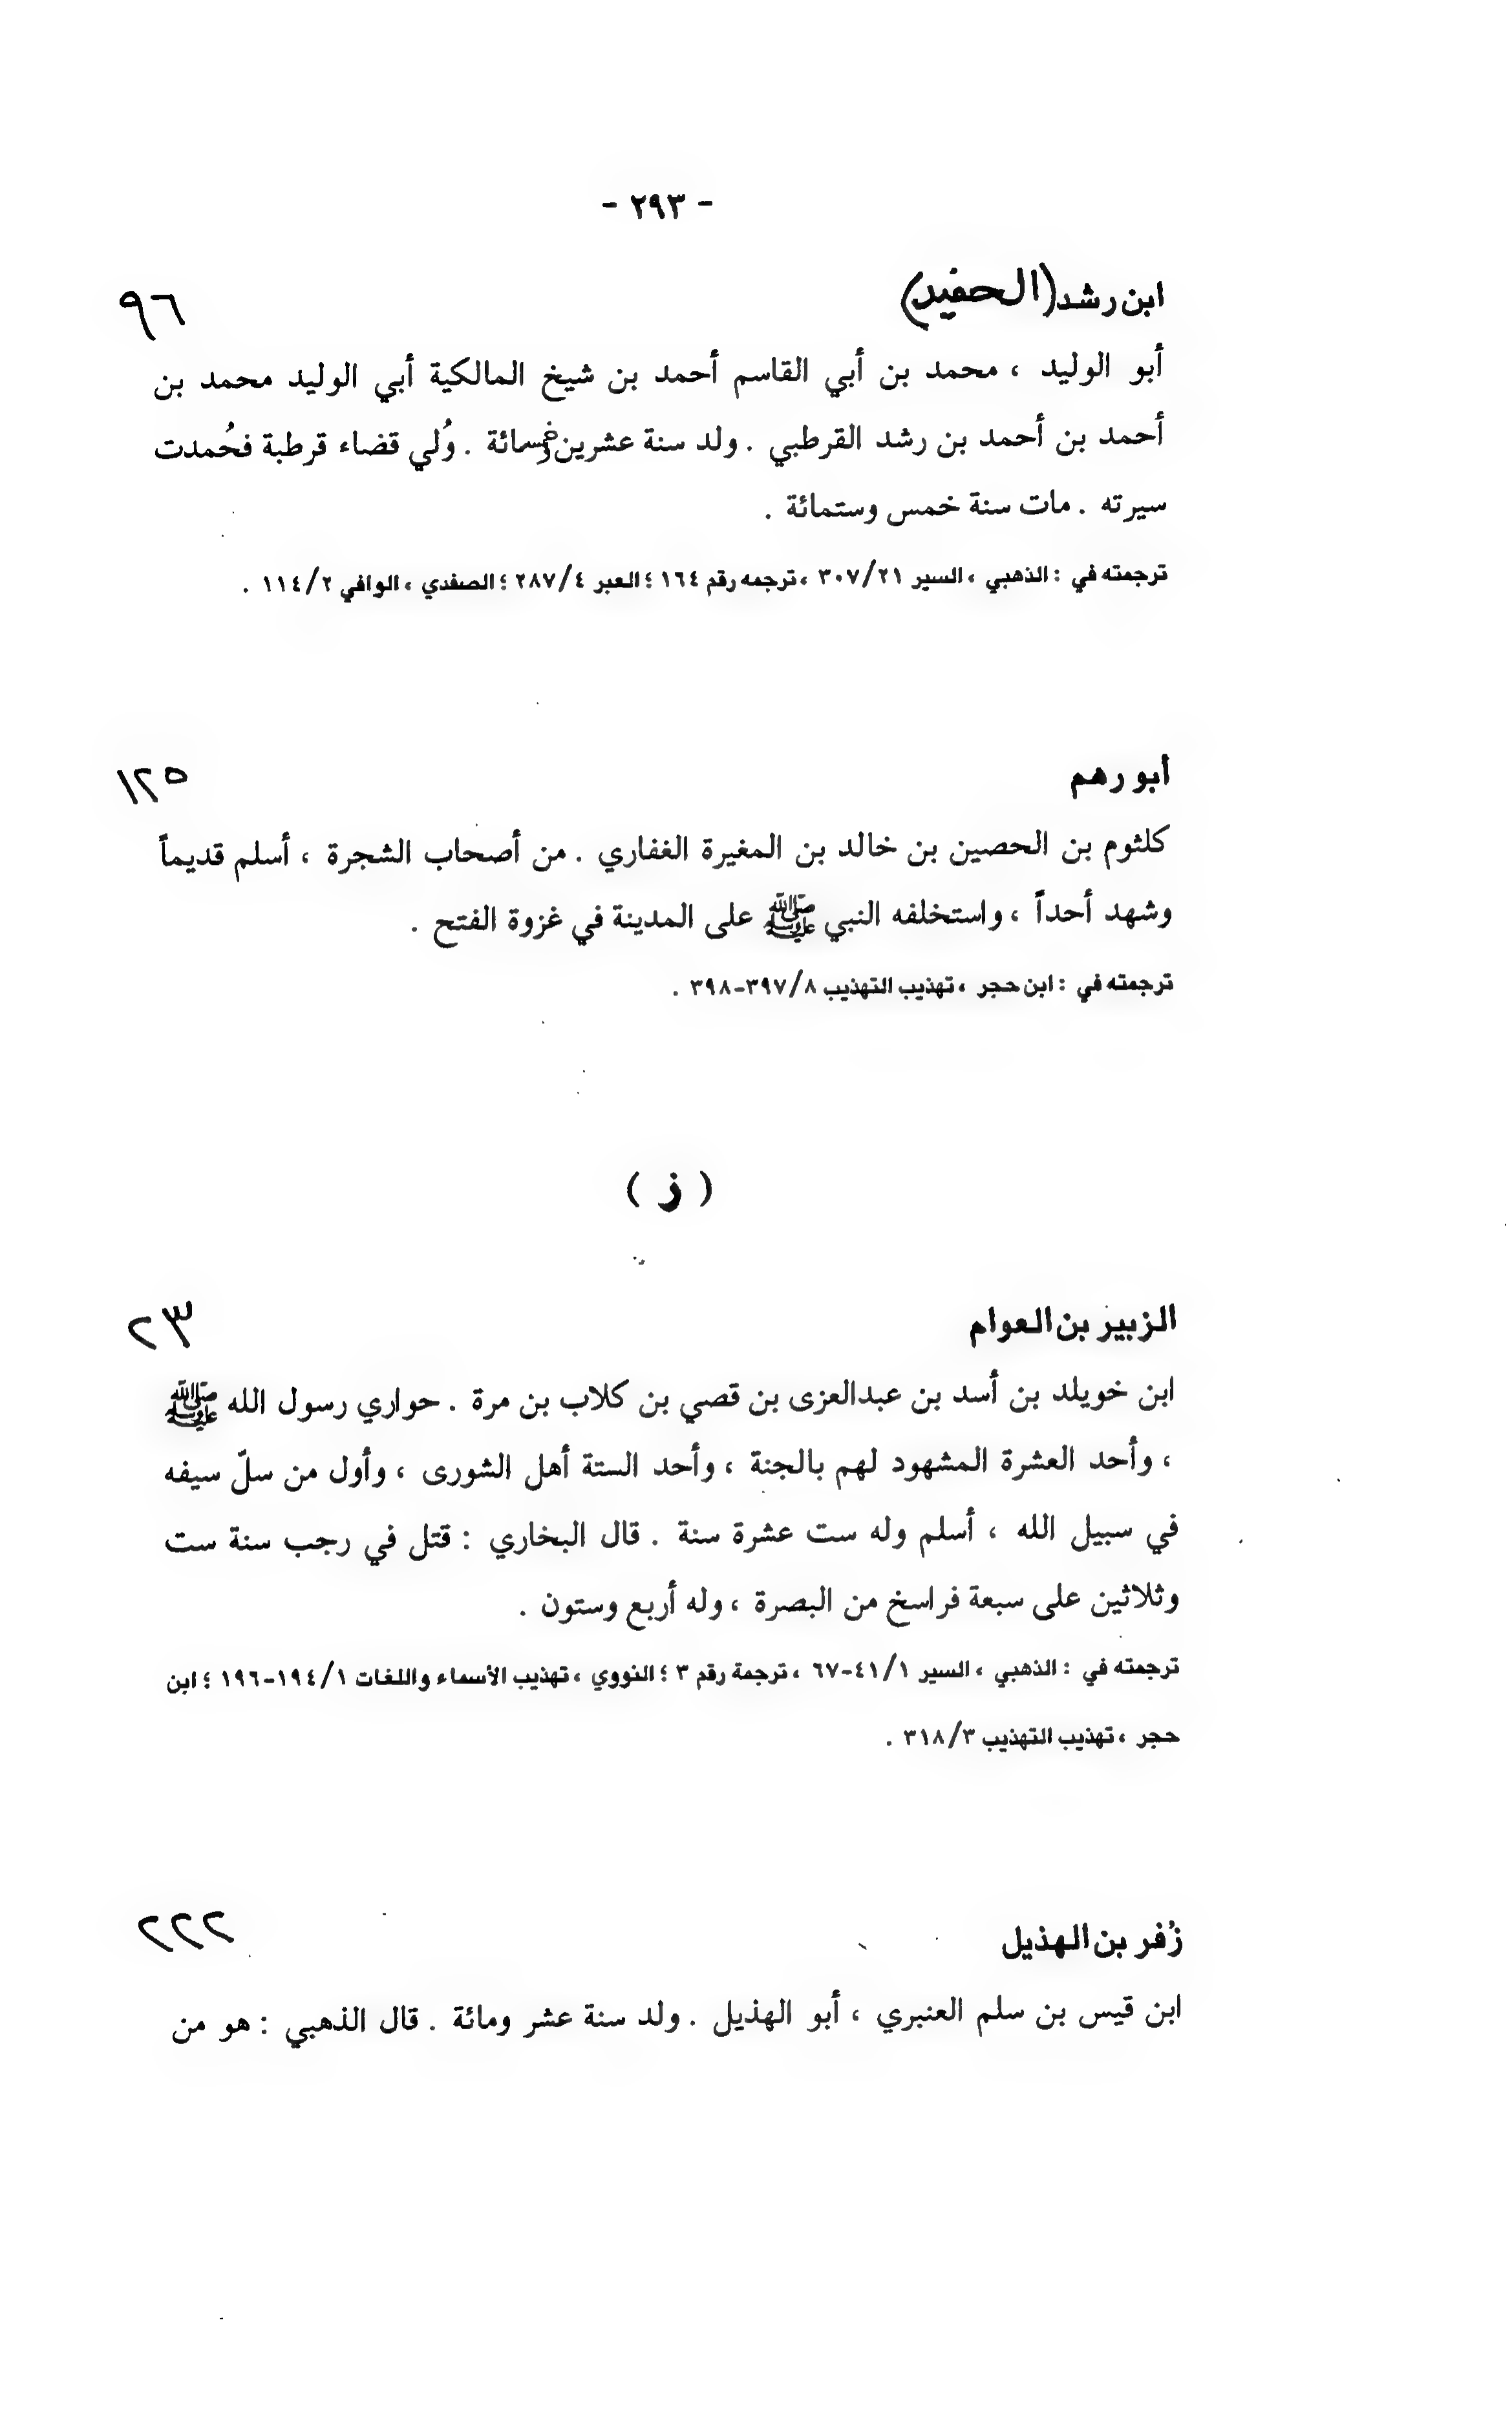 - ٢٩٣ -
ابن رشد (الحفيد) ٩٦
أبو الوليد ، محمد بن أبي القاسم أحمد بن شيخ المالكية أبي الوليد محمد بن
أحمد بن أحمد بن رشد القرطبي . ولد سنة عشرين وخمسمائة . وُلي قضاء قرطبة فحُمدت
سيرته . مات سنة خمس وستمائة .
ترجمته في : الذهبي ، السير ٣٠٧/٢١ ، ترجمه رقم ١٦٤ ؛ العبر ٢٨٧/٤ ؛ الصفدي ، الوافي ١١٤/٢ .
أبو رهم ١٢٥
كلثوم بن الحصين بن خالد بن المغيرة الغفاري . من أصحاب الشجرة ، أسلم قديماً
وشهد أحداً ، واستخلفه النبي ﷺ على المدينة في غزوة الفتح .
ترجمته في : ابن حجر ، تهذيب التهذيب ٣٩٧/٨-٣٩٨ .
( ز )
الزبير بن العوام ٢٣
ابن خويلد بن أسد بن عبدالعزى بن قصي بن كلاب بن مرة . حواري رسول الله ﷺ
، وأحد العشرة المشهود لهم بالجنة ، وأحد الستة أهل الشورى ، وأول من سلّ سيفه
في سبيل الله ، أسلم وله ست عشرة سنة . قال البخاري : قتل في رجب سنة ست
وثلاثين على سبعة فراسخ من البصرة ، وله أربع وستون .
ترجمته في : الذهبي ، السير ٤١/١-٦٧ ، ترجمة رقم ٣ ؛ النووي ، تهذيب الأسماء واللغات ١٩٤/١-١٩٦ ؛ ابن
حجر ، تهذيب التهذيب ٣١٨/٣ .
زُفر بن الهذيل ٢٢٢
ابن قيس بن سلم العنبري ، أبو الهذيل . ولد سنة عشر ومائة . قال الذهبي : هو من